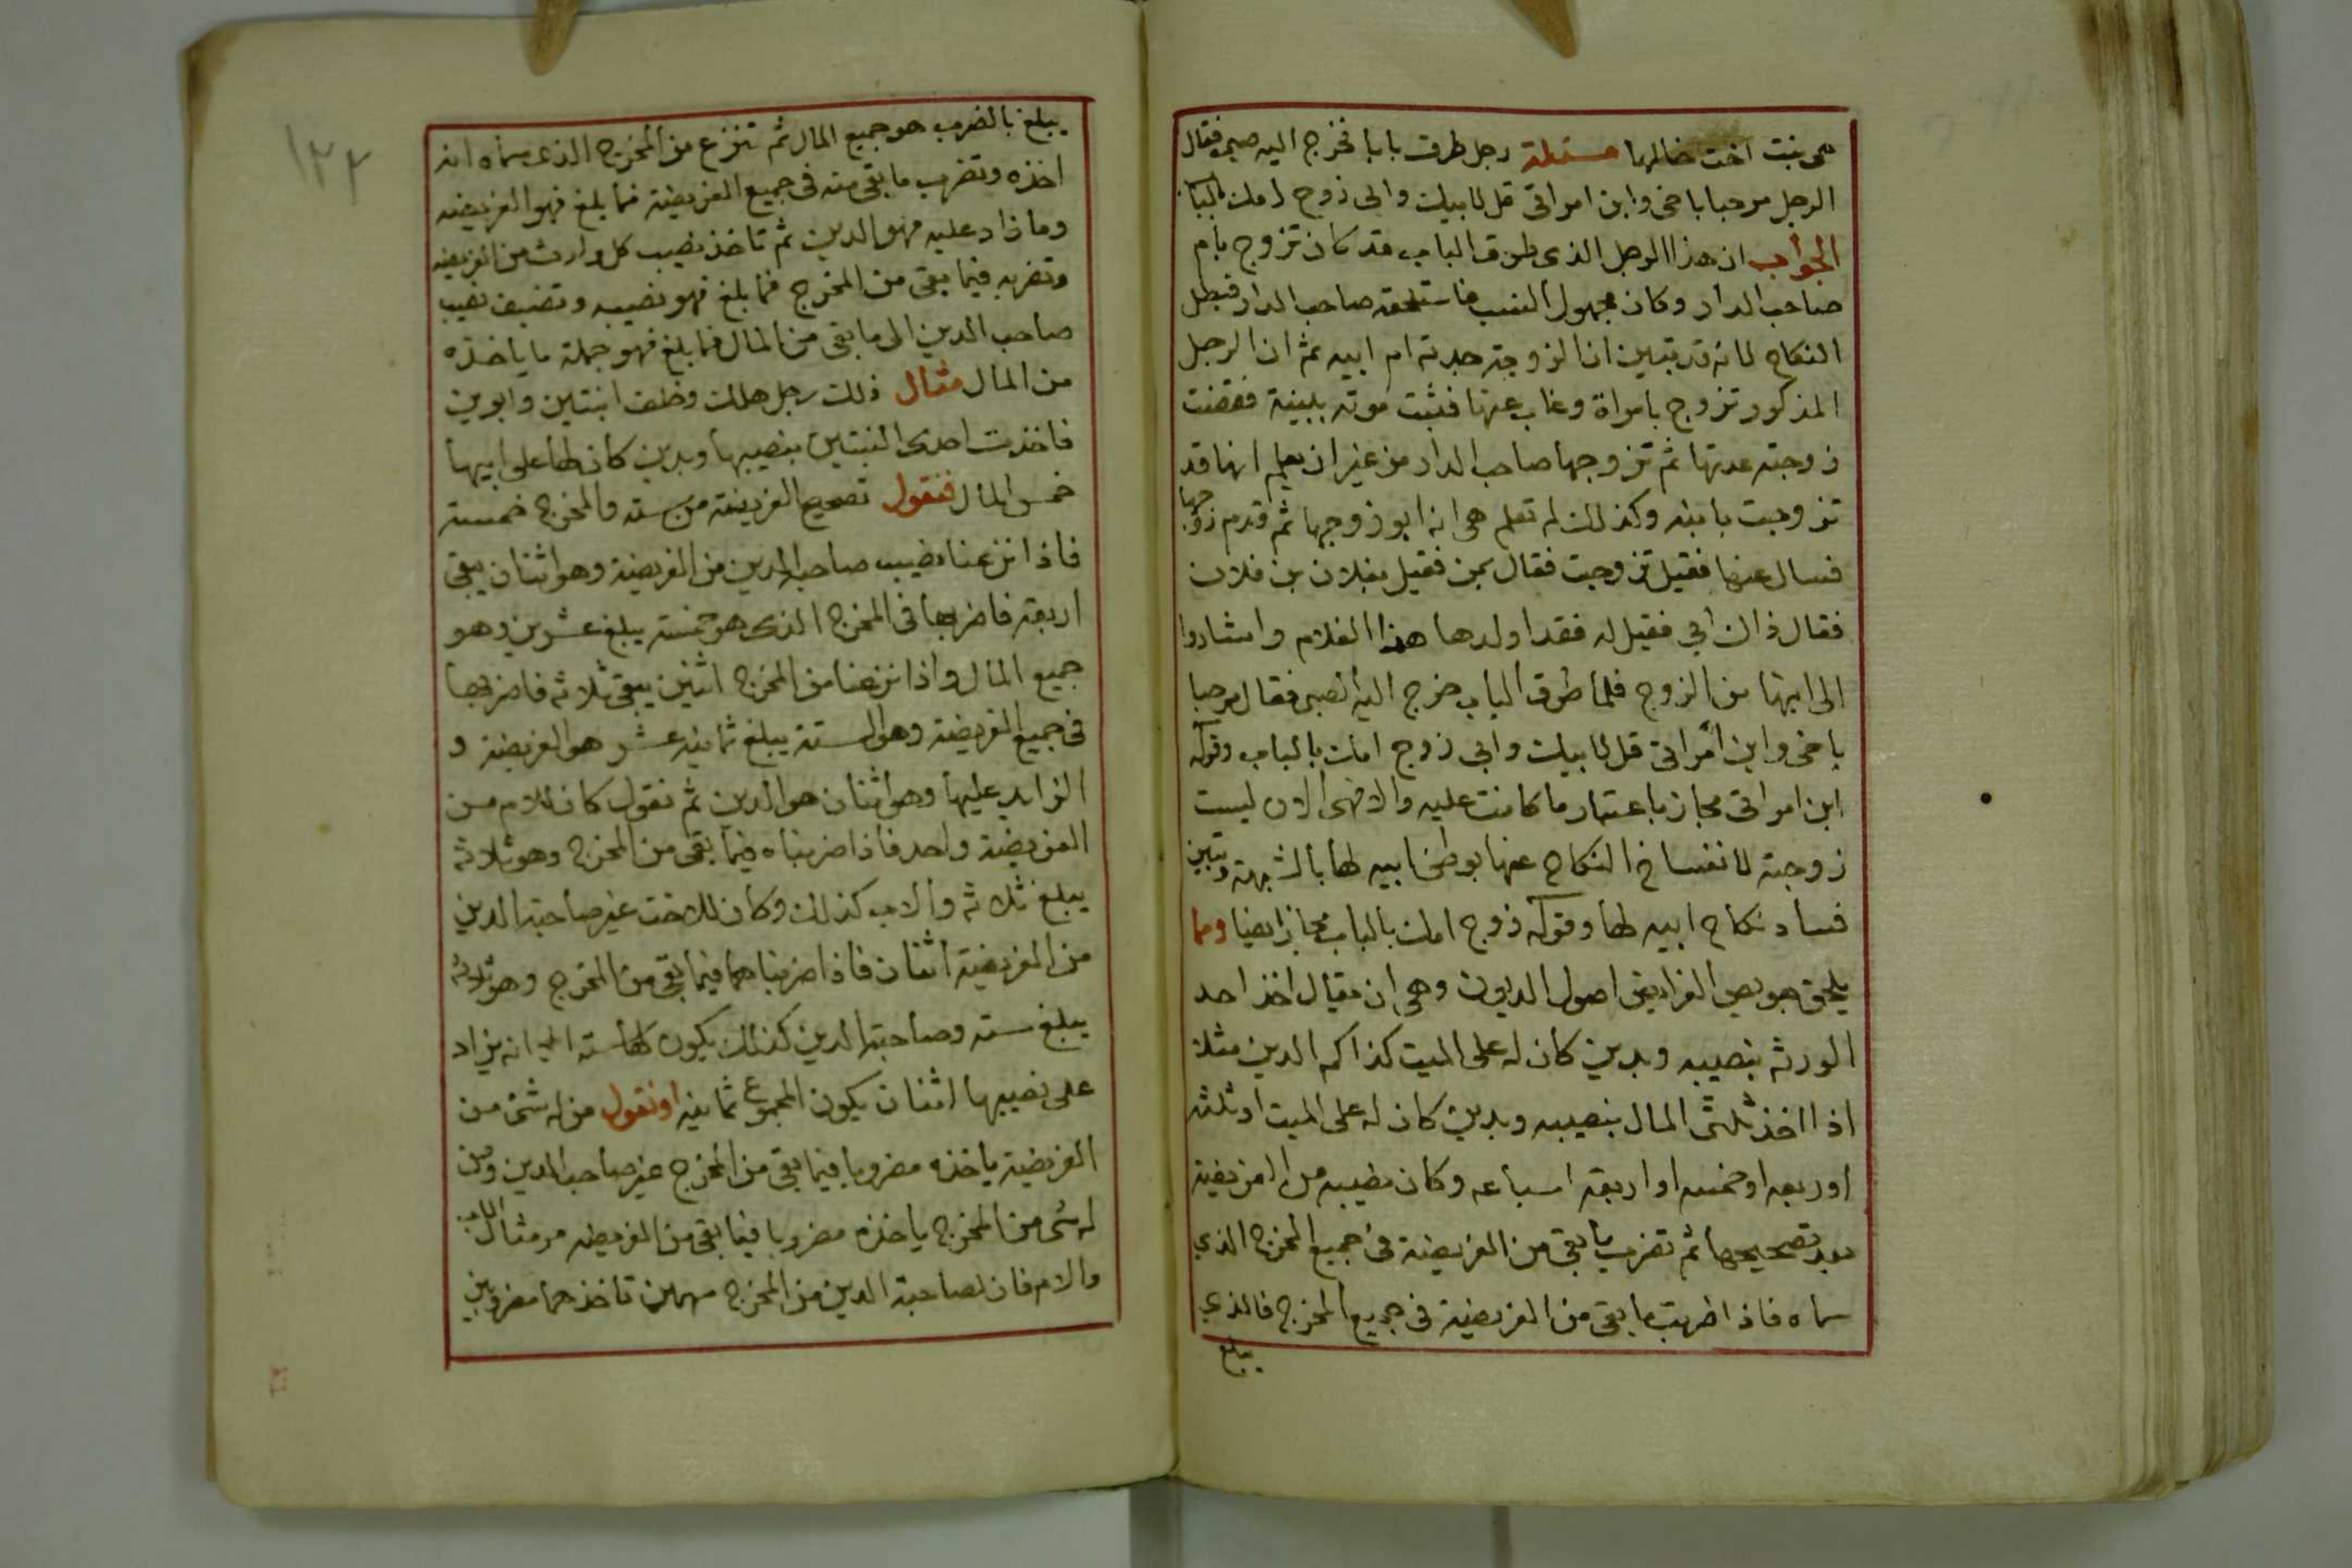 هى بنت اخت خالها مسئلة رجل طرق بابا فخرج اليه صبى فقال
الرجل مرحبا باخى وابن امراتى قل لابيك والى زوج امك بالباب
الجواب ان هذا الرجل الذى طرق الباب قد كان تزوج بام
صاحب الدار وكان مجهول النسب فاستلحقه صاحب الدار فبطل
النكاح لانه قد تبين ان الزوجة جدته ام ابيه ثم ان الرجل
المذكور تزوج بامراة وغاب عنها فثبت موته ببينة فقضت
زوجته عدتها ثم تزوجها صاحب الدار من غير ان يعلم انها قد
تزوجت بابنه وكذلك لم تعلم هى انه ابو زوجها ثم قدم زوجها
فسال عنها فقيل تزوجت فقال بمن فقيل بفلان بن فلان
فقال ذاك ابي فقيل له فقد اولدها هذا الغلام واشاروا
الى ابنها من الزوج فلما طرق الباب خرج اليه الصبى فقال مرحبا
باخى وابن امراتى قل لابيك وابى زوج امك بالباب وقوله
ابن امراتى مجاز باعتبار ما كانت عليه والا فهى الان ليست
زوجته لانفساخ النكاح عنها بوطئ ابيه لها بالشبهة وتبين
فساد نكاح ابيه لها وقوله زوج امك بالباب مجاز ايضا ومما
يلحق بعويص الفرايض اصول الديون وهى ان يقال اخذ احد
الورثه بنصيبه وبدين كان له على الميت كذا كم الدين مثلا
اذا اخذ ثلثى المال بنصيبه وبدين كان له على الميت او ثلثه
او ربعه او خمسه او اربعة اسباعه وكان نصيبه من الفريضة
بعد تصحيحها ثم تضرب ما بقى من الفريضة فى جميع المخرج الذي
سماه فاذا ضربت ما بقى من الفريضة فى جميع المخرج فالذي
يبلغ
١٢٢
يبلغ بالضرب هو جميع المال ثم تنزع من المخرج الذى سماه انه
اخذه وتضرب ما بقى منه فى جميع الفريضة فما بلغ فهو الفريضه
وما زاد عليه فهو الدين ثم تاخذ نصيب كل وارث من الفريضه
وتضربه فيما بقى من المخرج فما بلغ فهو نصيبه وتضيف نصيب
صاحب الدين الى ما بقى من المال فما بلغ فهو جملة ما ياخذه
من المال مثال ذلك رجل هلك وخلف ابنتين وابوين
فاخذت احدى البنتين بنصيبها وبدين كان لها على ابيها
خمس المال فنقول تصحيح الفريضة من سته والمخرج خمسة
فاذا نزعنا نصيب صاحبة الدين من الفريضة وهو اثنان يبقى
اربعة فاضربها فى المخرج الذى هو خمسة يبلغ عشرين وهو
جميع المال واذا نزعنا من المخرج اثنين يبقى ثلاثه فاضربها
فى جميع الفريضة وهو الستة يبلغ ثمانيه عشر هو الفريضة و
الزايد عليها وهو اثنان هو الدين ثم نقول كان للام من
الفريضة واحد فاذا ضربناه فيما بقى من المخرج وهو ثلاثه
يبلغ ثلاثه والاب كذلك وكان للاخت غير صاحبة الدين
من الفريضة اثنان فاذا ضربناهما فيما بقى من المخرج وهو ثلاثه
يبلغ سته وصاحبة الدين كذلك يكون لها سته الا انه يزاد
على نصيبها اثنان يكون المجموع ثمانيه او نقول من له شئ من
الفريضة ياخذه مضروبا فيما بقى من المخرج غير صاحب الدين ومن
له شى من المخرج ياخذه مضروبا فيما بقى من الفريضه مر مثال الاب
والام فان لصاحبة الدين من المخرج سهمين تاخذهما مضروبين